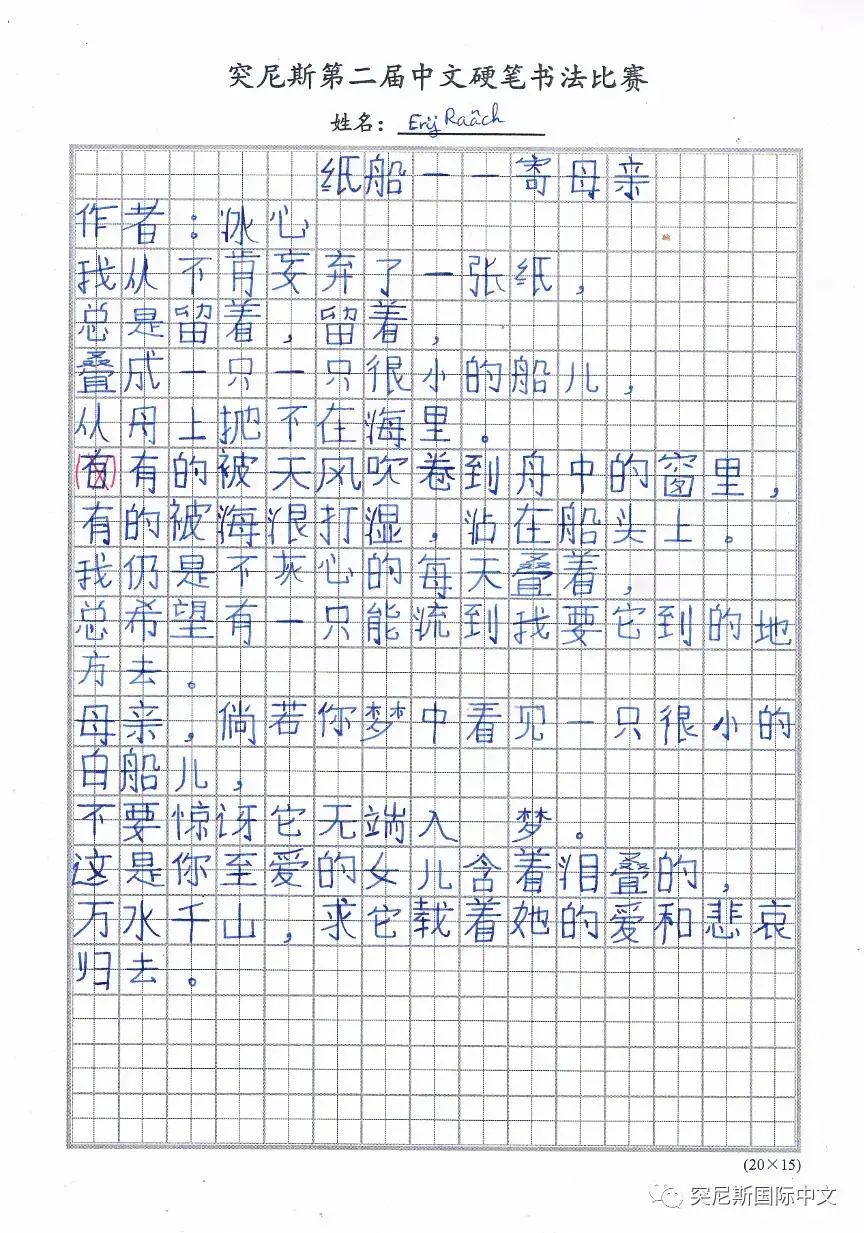 突尼斯第二届中文硬笔书法比赛
姓名： Erij Raâch
纸船——寄母亲
作者：冰心
我从不肯妄弃了一张纸，
总是留着，留着，
叠成一只一只很小的船儿，
从舟上抛下在海里。
有的被天风吹卷到舟中的窗里，
有的被海浪打湿，沾在船头上。
我仍是不灰心的每天叠着，
总希望有一只能流到我要它到的地
方去。
母亲，倘若你梦中看见一只很小的
白船儿，
不要惊讶它无端入 梦。
这是你至爱的女儿含着泪叠的，
万水千山，求它载着她的爱和悲哀
归去。
(20×15)
突尼斯国际中文